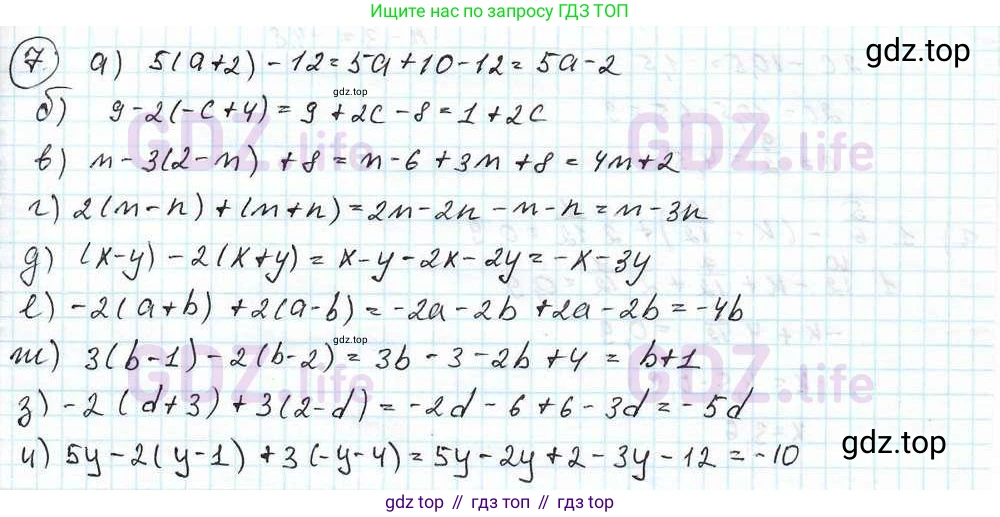 Ищите нас по запросу ГДЗ ТОП
7 а) 5(a+2) - 12 = 5a + 10 - 12 = 5a - 2
gdz.top
gdz.top
б) 9 - 2(-c + 4) = 9 + 2c - 8 = 1 + 2c
GDZ.life GDZ.life
в) n - 3(2 - n) + 8 = n - 6 + 3n + 8 = 4n + 2
г) 2(m - n) + (m + n) = 2m - 2n - m - n = m - 3n
д) (x - y) - 2(x + y) = x - y - 2x - 2y = -x - 3y
е) -2(a + b) + 2(a - b) = -2a - 2b + 2a - 2b = -4b
gdz.top
ж) 3(b - 1) - 2(b - 2) = 3b - 3 - 2b + 4 = b + 1
GDZ.life GDZ.life
з) -2(d + 3) + 3(2 - d) = -2d - 6 + 6 - 3d = -5d
и) 5y - 2(y - 1) + 3(-y - 4) = 5y - 2y + 2 - 3y - 12 = -10
gdz.top
gdz.top // гдз топ // gdz.top